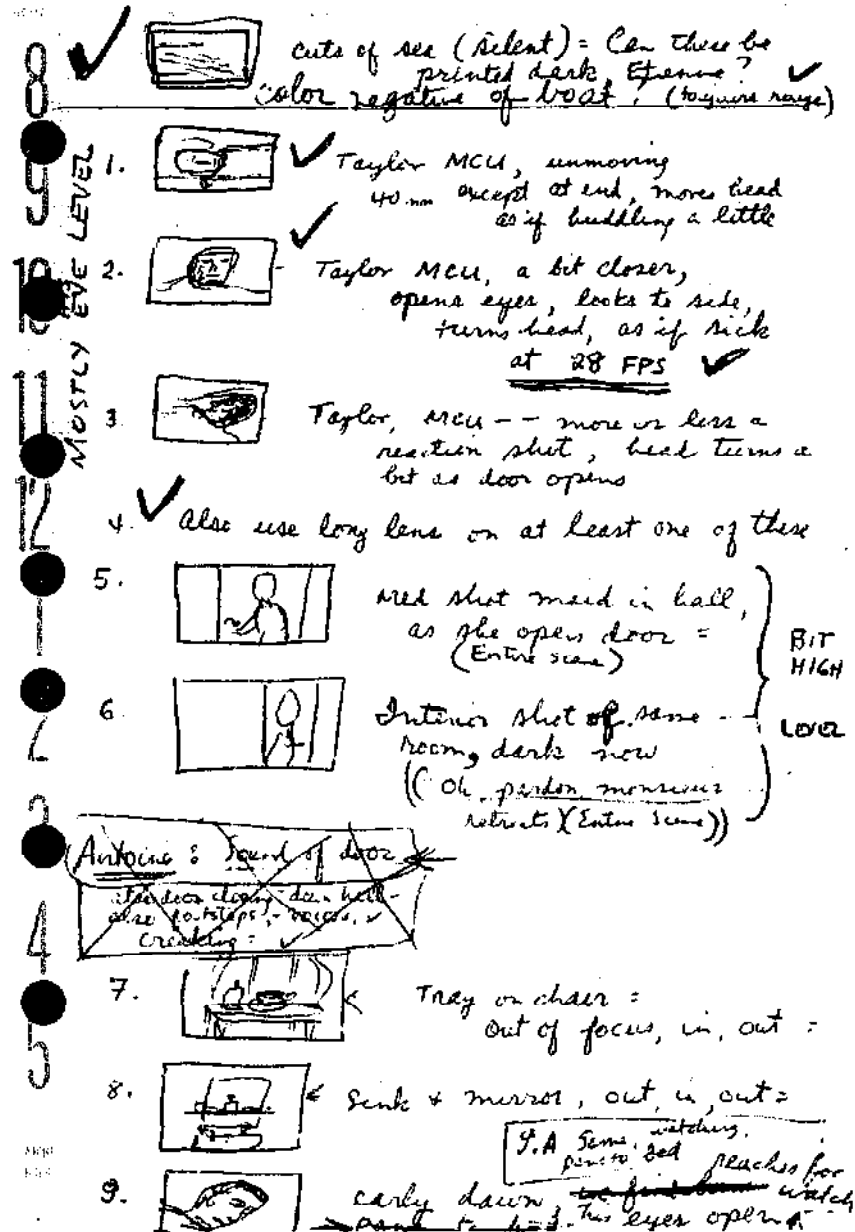 8
cuts of sea (silent) = Can these be
printed dark, Etienne?
color negative of boat?
9
MOSTLY EYE LEVEL
1. Taylor MCU, unmoving
40 mm except at end, moves head
as if huddling a little
10
2. Taylor MCU, a bit closer,
opens eyes, looks to side,
turns head, as if sick
at 28 FPS
11
3 Taylor, MCU -- more or less a
reaction shot, head turns a
bit as door opens
12
4. Also use long lens on at least one of these
1
5. Med shot maid in hall,
as she opens door =
(Entire scene)
BIT
HIGH
2
6 Interior shot of same --
room, dark now
LEVEL
((Oh, pardon, monsieur
retreats)(Entire Scene))
3
Antoine: Sound of door
also door closing down hall -
also footsteps, - voices,
creaking =
4
7. Tray on chair =
Out of focus, in, out =
5
8. Sink & mirror, out, in, out =
9.A Same, watching,
pans to bed
9. early dawn reaches for watch
his eyes open